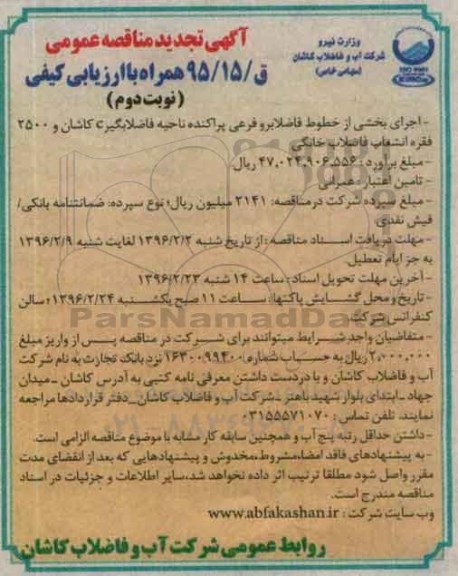 آگهی تجدید مناقصه عمومی
ق/۹۵/۱۵ همراه با ارزیابی کیفی
(نوبت دوم)
وزارت نیرو
شرکت آب و فاضلاب کاشان
(سهامی خاص)
- اجرای بخشی از خطوط فاضلابرو فرعی پراکنده ناحیه فاضلابگیر C کاشان و ۲۵۰۰
فقره انشعاب فاضلاب خانگی
- مبلغ برآورد : ۴۷،۰۲۴،۹۰۶،۵۵۶ ریال
- تامین اعتبار: عمرانی
- مبلغ سپرده شرکت در مناقصه: ۲۱۴۱ میلیون ریال؛ نوع سپرده: ضمانتنامه بانکی/
فیش نقدی
- مهلت دریافت اسناد مناقصه : از تاریخ شنبه ۱۳۹۶/۲/۲ لغایت شنبه ۱۳۹۶/۲/۹
به جز ایام تعطیل
- آخرین مهلت تحویل اسناد : ساعت ۱۴ شنبه ۱۳۹۶/۲/۲۳
- تاریخ و محل گشایش پاکتها: ساعت ۱۱ صبح یکشنبه ۱۳۹۶/۲/۲۴؛ سالن
کنفرانس شرکت
- متقاضیان واجد شرایط میتوانند برای شرکت در مناقصه پس از واریز مبلغ
۲،۰۰۰،۰۰۰ ریال به حساب شماره ۱۶۳۰۰۹۹۴۰۰ نزد بانک تجارت به نام شرکت
آب و فاضلاب کاشان و با در دست داشتن معرفی نامه کتبی به آدرس کاشان - میدان
جهاد - ابتدای بلوار شهید باهنر - شرکت آب و فاضلاب کاشان - دفتر قراردادها مراجعه
نمایند. تلفن تماس : ۰۳۱۵۵۵۷۱۰۷۰
- داشتن حداقل رتبه پنج آب و همچنین سابقه کار مشابه با موضوع مناقصه الزامی است.
- به پیشنهادهای فاقد امضاء، مشروط، مخدوش و پیشنهادهایی که بعد از انقضای مدت
مقرر واصل شود مطلقا ترتیب اثر داده نخواهد شد، سایر اطلاعات و جزئیات در اسناد
مناقصه مندرج است.
وب سایت شرکت : www.abfakashan.ir
روابط عمومی شرکت آب و فاضلاب کاشان
ParsNamadData